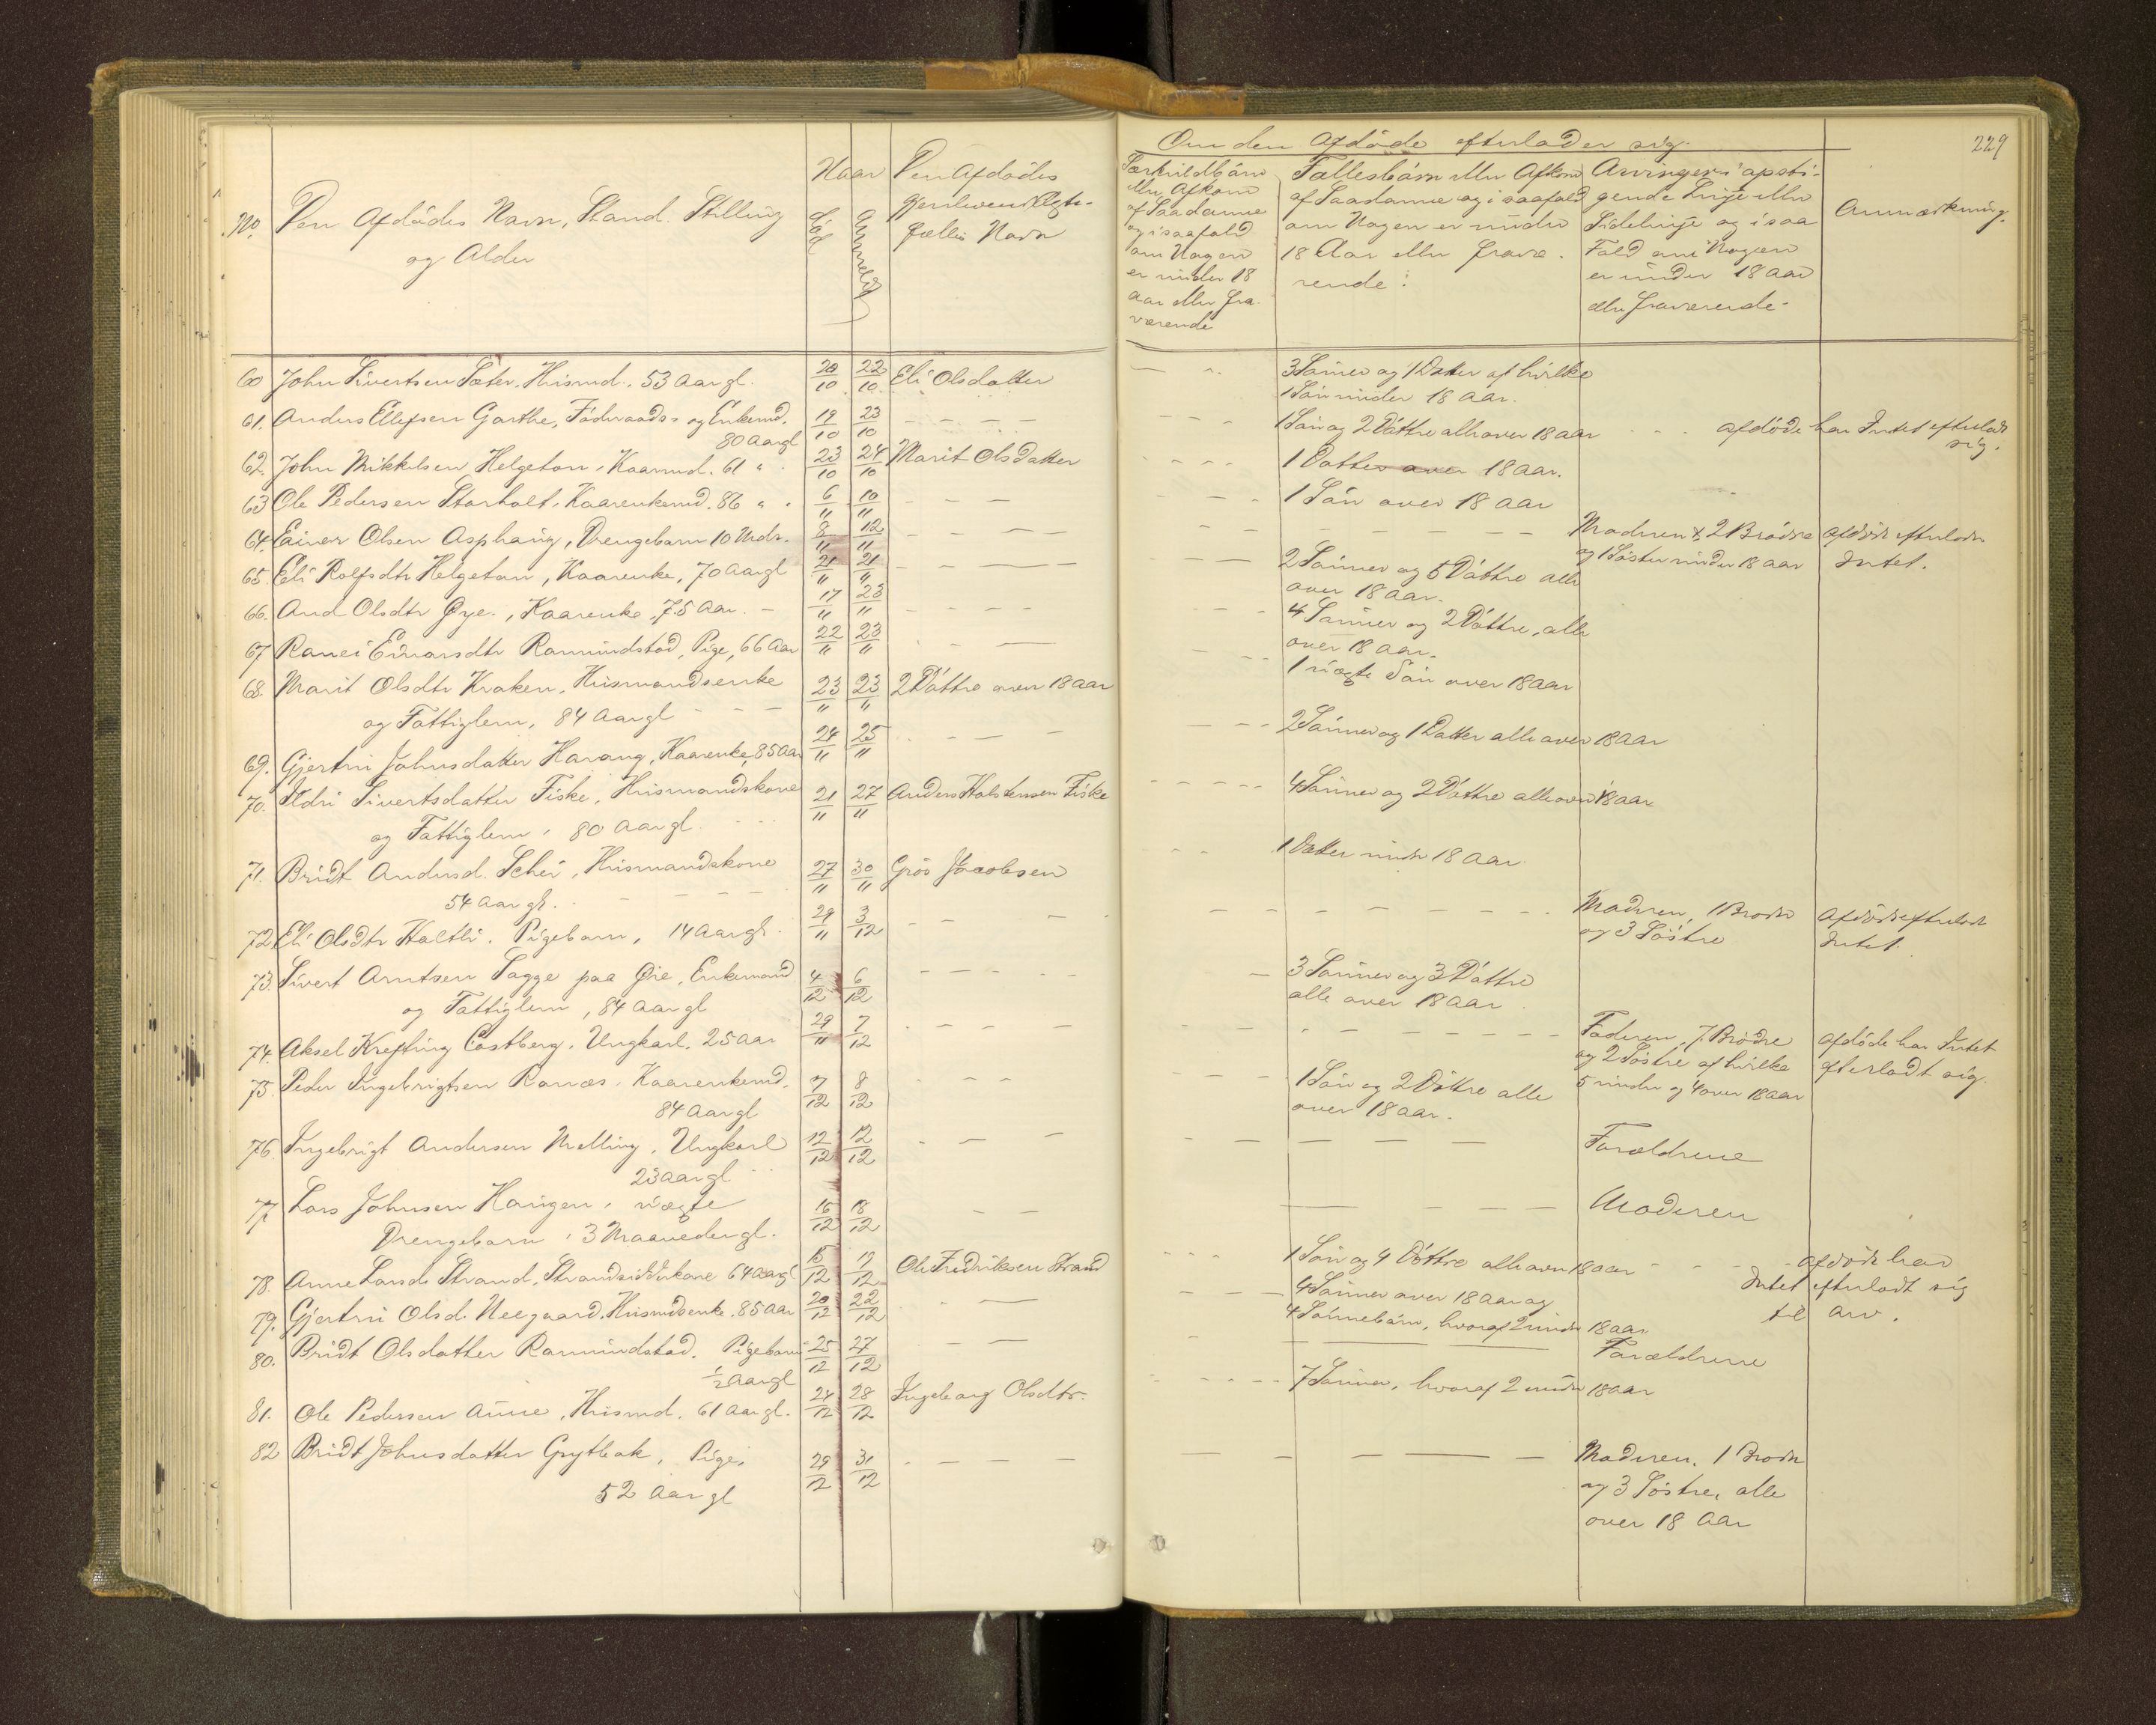 229
No.
Den Afdødes Navn, Stand. Stilling
og Alder
Naar
Død
Anmeldt
Den Afdødes
gjenlevende Ægte-
fælles Navn
Om den Afdøde efterlader sig.
Særkuldbørn
eller Afkom
af Saadanne
og i saafald
om Nogen
er under 18
Aar eller fra-
værende
Fællesbørn eller Afkom
af Saadanne og i saafald
om Nogen er under
18 Aar eller fravæ-
rende:
Arvinger i opsti-
gende Linje eller
Sidelinje og i saa
Fald om Nogen
er under 18 Aar
eller fraværende.
Anmærkning.
60 John Sivertsen Sæter, Husmd., 53 Aar gl. 20/10 22/10 Eli Olsdatter 3 Sønner og 1 Datter af hvilke
1 Søn under 18 Aar.
61. Anders Ellefsen Garthe, Føderaads- og Enkemd. 19/10 23/10 - - - - 1 Søn og 2 Døttre alle over 18 Aar - - - afdøde har Intet efterladt
80 Aar gl sig.
62. John Mikkelsen Helgeton, Kaarmd. 61 " 23/10 24/10 Marit Olsdatter 1 Datter over 18 Aar.
63 Ole Pedersen Storholt, Kaarenkemd. 86 " " 6/11 10/11 - - - 1 Søn over 18 Aar
64. Einer Olsen Asphaug, Drengebarn 10 Mdr. 8/11 12/11 - - - Moderen & 2 Brødre afdøde efterlader
og 1 Søster under 18 Aar Intet.
65. Eli Rolfsdtr Helgeton, Kaarenke, 70 Aar gl 21/11 21/11 - - - 2 Sønner og 5 Døttre alle
over 18 Aar.
66. And Olsdtr Øye, Kaarenke, 75 Aar. - 17/11 23/11 - - - 4 Sønner og 2 Døttre, alle
over 18 Aar.
67 Ranei Edvarsdtr Ranmindstad, Pige, 66 Aar 22/11 23/11 - - 1 uægte Søn over 18 Aar
68. Marit Olsdtr Kraken, Husmandsenke 23/11 23/11 2 Døttre over 18 Aar
og Fattiglem, 84 Aar gl - - - 2 Sønner og 1 Datter alle over 18 Aar
69. Gjertru Johnsdatter Harang, Kaarenke, 85 Aar 24/11 25/11 - - -
70. Ildri Sivertsdatter Fiske, Husmandskone 21/11 27/11 Anders Halstensen Fiske 4 Sønner og 2 Døttre alle over 18 Aar
og Fattiglem, 80 Aar gl.
71. Bridt Andersd. Schei, Husmandskone 27/11 30/11 Gros Jacobsen 1 Datter under 18 Aar.
54 Aar gl. - - - -
72 Eli Olsdtr Holtli. Pigebarn, 14 Aar gl. 29/11 3/12 - - - Moderen, 1 Broder afdøde efterlod
og 3 Søstre Intet.
73. Sivert Arntsen Sagge paa Øie, Enkemand 4/12 6/12 - - - 3 Sønner og 3 Døttre
og Fattiglem, 84 Aar gl alle over 18 Aar
74. Aksel Krefting Castberg, Ungkarl. 25 Aar 29/11 7/12 - - - - Faderen, 7 Brødre afdøde har Intet
og 2 Søstre af hvilke efterladt sig.
5 under og 4 over 18 Aar
75. Peder Ingebrigtsen Ranæs, Kaarenkemd. 7/12 8/12 - - - 1 Søn og 2 Døttre alle
84 Aar gl over 18 Aar.
76. Ingebrigt Andersen Melling, Ungkarl 12/12 12/12 - - - Forældrene
23 Aar gl
77. Lars Johnsen Haugen, uægte 16/12 18/12 - - Moderen
Drengebarn, 3 Maaneder gl.
78. Anne Larsd. Strand, Strandsidderkone 64 Aar gl 15/12 19/12 Ole Fredriksen Strand 1 Søn og 4 Døttre alle over 18 Aar - - - afdøde har
Intet efterladt sig
til Arv.
79. Gjertru Olsd. Neegaard, Husmdsenke. 85 Aar 20/12 22/12 - - 4 Sønner over 18 Aar og
4 Sønnebørn, hvoraf 2 under 18 Aar
80. Bridt Olsdatter Ranmindstad, Pigebarn 25/12 27/12 - - Forældrene
1/2 Aar gl
81. Ole Pedersen Aune, Husmd. 61 Aar gl. 24/12 28/12 Ingeborg Olsdtr. 7 Sønner, hvoraf 2 under 18 Aar
82 Bridt Johnsdatter Grytbak, Pige, 29/12 31/12 - - - - Moderen, 1 Broder
52 Aar gl og 3 Søstre, alle
over 18 Aar